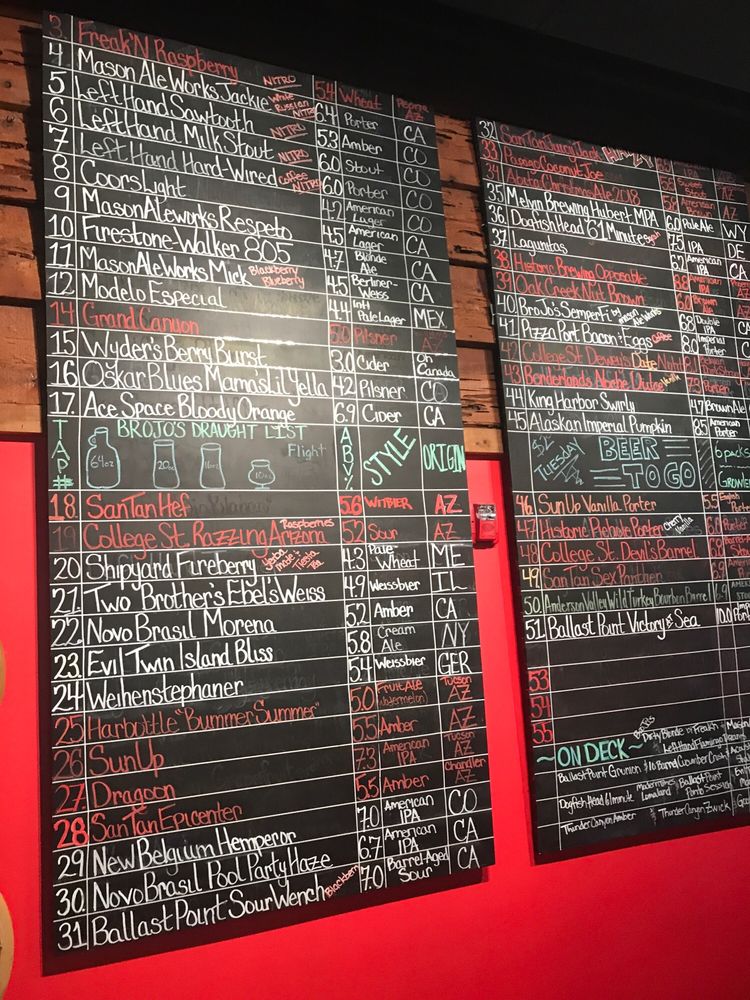 3. Freak'N Raspberry 5.4 Wheat Peoria AZ
4 Mason Ale Works Jackie NITRO White Russian 6.4 Porter CA
5 Left Hand Sawtooth NITRO 5.3 Amber CO
6 Left Hand Milk Stout NITRO 6.0 Stout CO
7 Left Hand Hard-Wired Coffee NITRO 6.0 Porter CO
8 Coors Light 4.2 American Lager CO
9 Mason Aleworks Respeto 4.5 American Lager CA
10 Firestone-Walker 805 4.7 Blonde Ale CA
11 Mason Ale Works Mick Blackberry Blueberry 4.5 Berliner-Weiss CA
12 Modelo Especial 4.4 Intl Pale Lager MEX
14 Grand Canyon 5.0 Pilsner AZ
15 Wyder's Berry Burst 3.0 Cider On Canada
16 Oskar Blues Mama's Lil Yella 4.2 Pilsner CO
17. Ace Space Bloody Orange 6.9 Cider CA
TAP #s BROJO'S DRAUGHT LIST ABV% STYLE ORIGIN
64oz 20oz 16oz Flight 10oz
18. SanTan Hef 5.6 Witbier AZ
19 College St. Razzung Arizona Raspberries 5.2 Sour AZ
20 Shipyard Fireberry 4.3 Pale-Wheat ME
21. Two Brother's Ebel's Weiss 4.9 Weissbier IL
22. Novo Brasil Morena 5.2 Amber CA
23. Evil Twin Island Bliss 5.8 Cream Ale NY
24 Weihenstephaner 5.4 Weissbier GER
25 Harbottle "Bummer Summer" 5.0 Fruit Ale (watermelon) Tucson AZ
26 SunUp 5.5 Amber AZ
27 Dragoon 7.3 American IPA Tucson AZ
28 SanTan Epicenter 5.5 Amber Chandler AZ
29 New Belgium Hemperor 7.0 American IPA CO
30. Novo Brasil Pool Party Haze 6.7 American IPA CA
31 Ballast Point Sour Wench Blackberry 7.0 Barrel-Aged Sour CA
32 SanTan Juicy Jack
33 Papago Coconut Joe Sweet Stout
34 Abuta Christmas Ale 2018 American
35 Melvin Brewing Hubert MPA 6.0 Pale Ale WY
36. Dogfish Head 61 Minute 7.5 IPA DE
37. Lagunitas 6.2 American IPA CA
38 Historic Brewing Opposable
39 Oak Creek Nut Brown
40 BroJo's Semper Fi by Mason Ale Works 6.8 Double IPA CA
41 Pizza Port Bacon & Eggs Coffee 8.0 Imperial Porter CA
42 College St Dewey's Date
43 Borderlands Noche Dulce Vanilla
44 King Harbor Swirly 4.7 Brown Ale
45 Alaskan Imperial Pumpkin 8.5 American Porter
$2 TUESDAY BEER TO GO 6 packs & Growlers
46. SunUp Vanilla Porter 5.5 English Porter
47 Historic Piehole Porter Cherry Vanilla
48 College St. Devil's Barrel
49 SanTan Sex Panther 6.9
50 Anderson Valley Wild Turkey Bourbon Barrel 6.9
51 Ballast Point Victory at Sea 10.0
53
54
55
~ON DECK~
Dirty Blonde
Left Hand Flamingo
Ballast Point Grunion 10 Barrel Cucumber Crush
Dogfish 61 minute Modern Times Lomaland Ballast Point
Thunder Canyon Amber Thunder Canyon Zwick